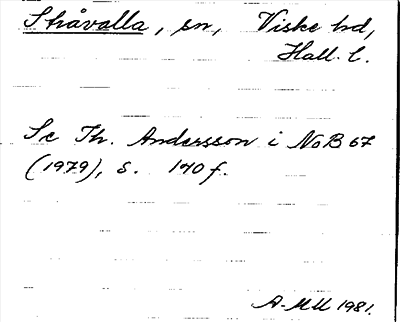 Stråvalla, sn, Viske hd,
Hall. l.
Se Th. Andersson i NoB 67
(1979), s. 170 f.
A-MM 1981.